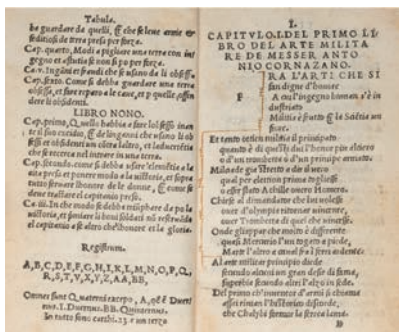 Tabula.
be guardare da quelli, & che se leue arme e
seditiosi de terra presa per forza.
Cap. quarto, Modi a pigliare una terra con in
gegno et astutia se non si po per forza.
Ca. v. Ingāni et fraudi che se usano da li obsessi.
Cap. sexto. Come si debba guardare una terra
obsessa, et fare reparo a le caue, et p quelle, offen
dere li obsidenti.
LIBRO NONO.
Cap. primo, Quello habbia a fare lo obsesso inan
te il suo excidio, & de linganni che usano li ob
sessi et obsidenti un cōtra laltro, et laduertētia
che se recerca nel intrare in una terra.
Cap. secondo. come se debba usare clemētia a la
citta presa et ponere modo a la uictoria, et sopra
tutto seruare lhonore de le donne, & come se
deue trattare el capitanio preso.
Ca. iii. In che modo se debba triūphare de po la
uictoria, et
el capitanio a se altro che lhonore et la gloria.
Registrum.
A, B, C, D, E, F, G, H, I, K, L, M, N, O, P, Q,
R, S, T, V, X, Y, Z, AA, BB,
Omnes sunt Quaterni excepto, A, q̄ è Duer
nus. I. Duernus. BB. Quinternus.
In tutto sono carthi. 23 e un terzo
I.
CAPITVLO. I. DEL PRIMO LI
BRO DEL ARTE MILITA
RE DE MESSER ANTO
NIO CORNAZANO.
F RA L'ARTI CHE SI
fan digne d'honore
A cui l'ingegno human s'è in
dustriato
Militia è frutto & le Sciētie un
fiore.
Et tanto
quanto è di quelli dui l'honor piu altiero
o d'un trombetta o d'un principe armato.
Mila
qual per election prima togliessi
o esser stato Achille ouero Homero.
Chiese al dimandante che lui volesse
ouer d'olympie ritornar uincente,
ouer Trombetta di quel che vincesse.
Onde gliappar che molto è differente
quasi Mercurio l'un togato a piede,
Marte l'altro a caual fra l'armi ardente.
Al arte militar principio diede
secondo alcuni un gran desir di fama,
superbia secondo altri l'alzo in sede.
Del primo ch'inuentor d'armi si chiama
assai riman l'historico discorde,
che Chalybi formar la ferrea lama.
B